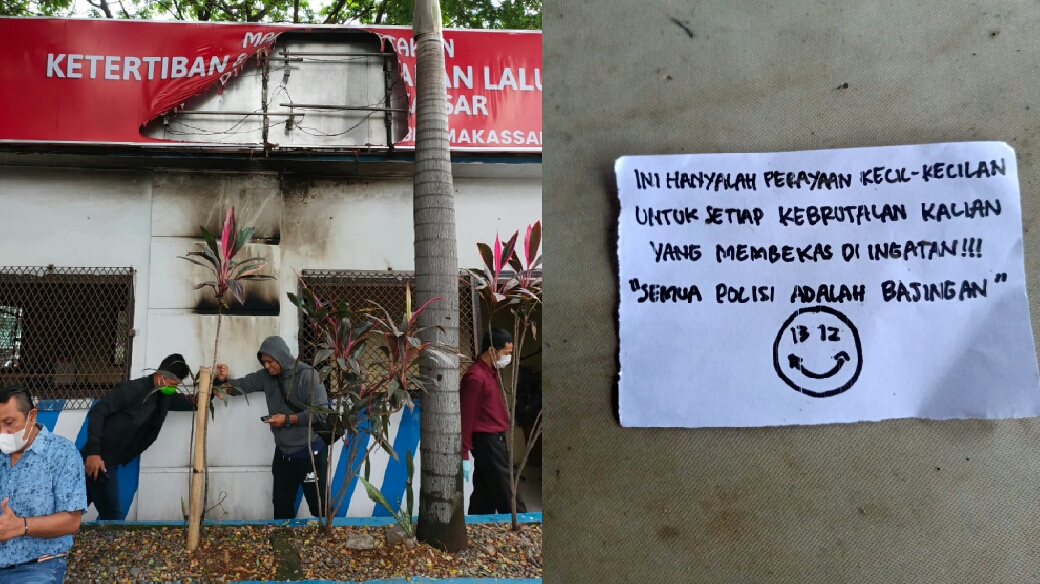 KETERTIBAN
AN LALU
SSAR
MAKASSAR
INI HANYALAH PERAYAAN KECIL-KECILAN
UNTUK SETIAP KEBRUTALAN KALIAN
YANG MEMBEKAS DI INGATAN!!!
"SEMUA POLISI ADALAH BAJINGAN"
13 12